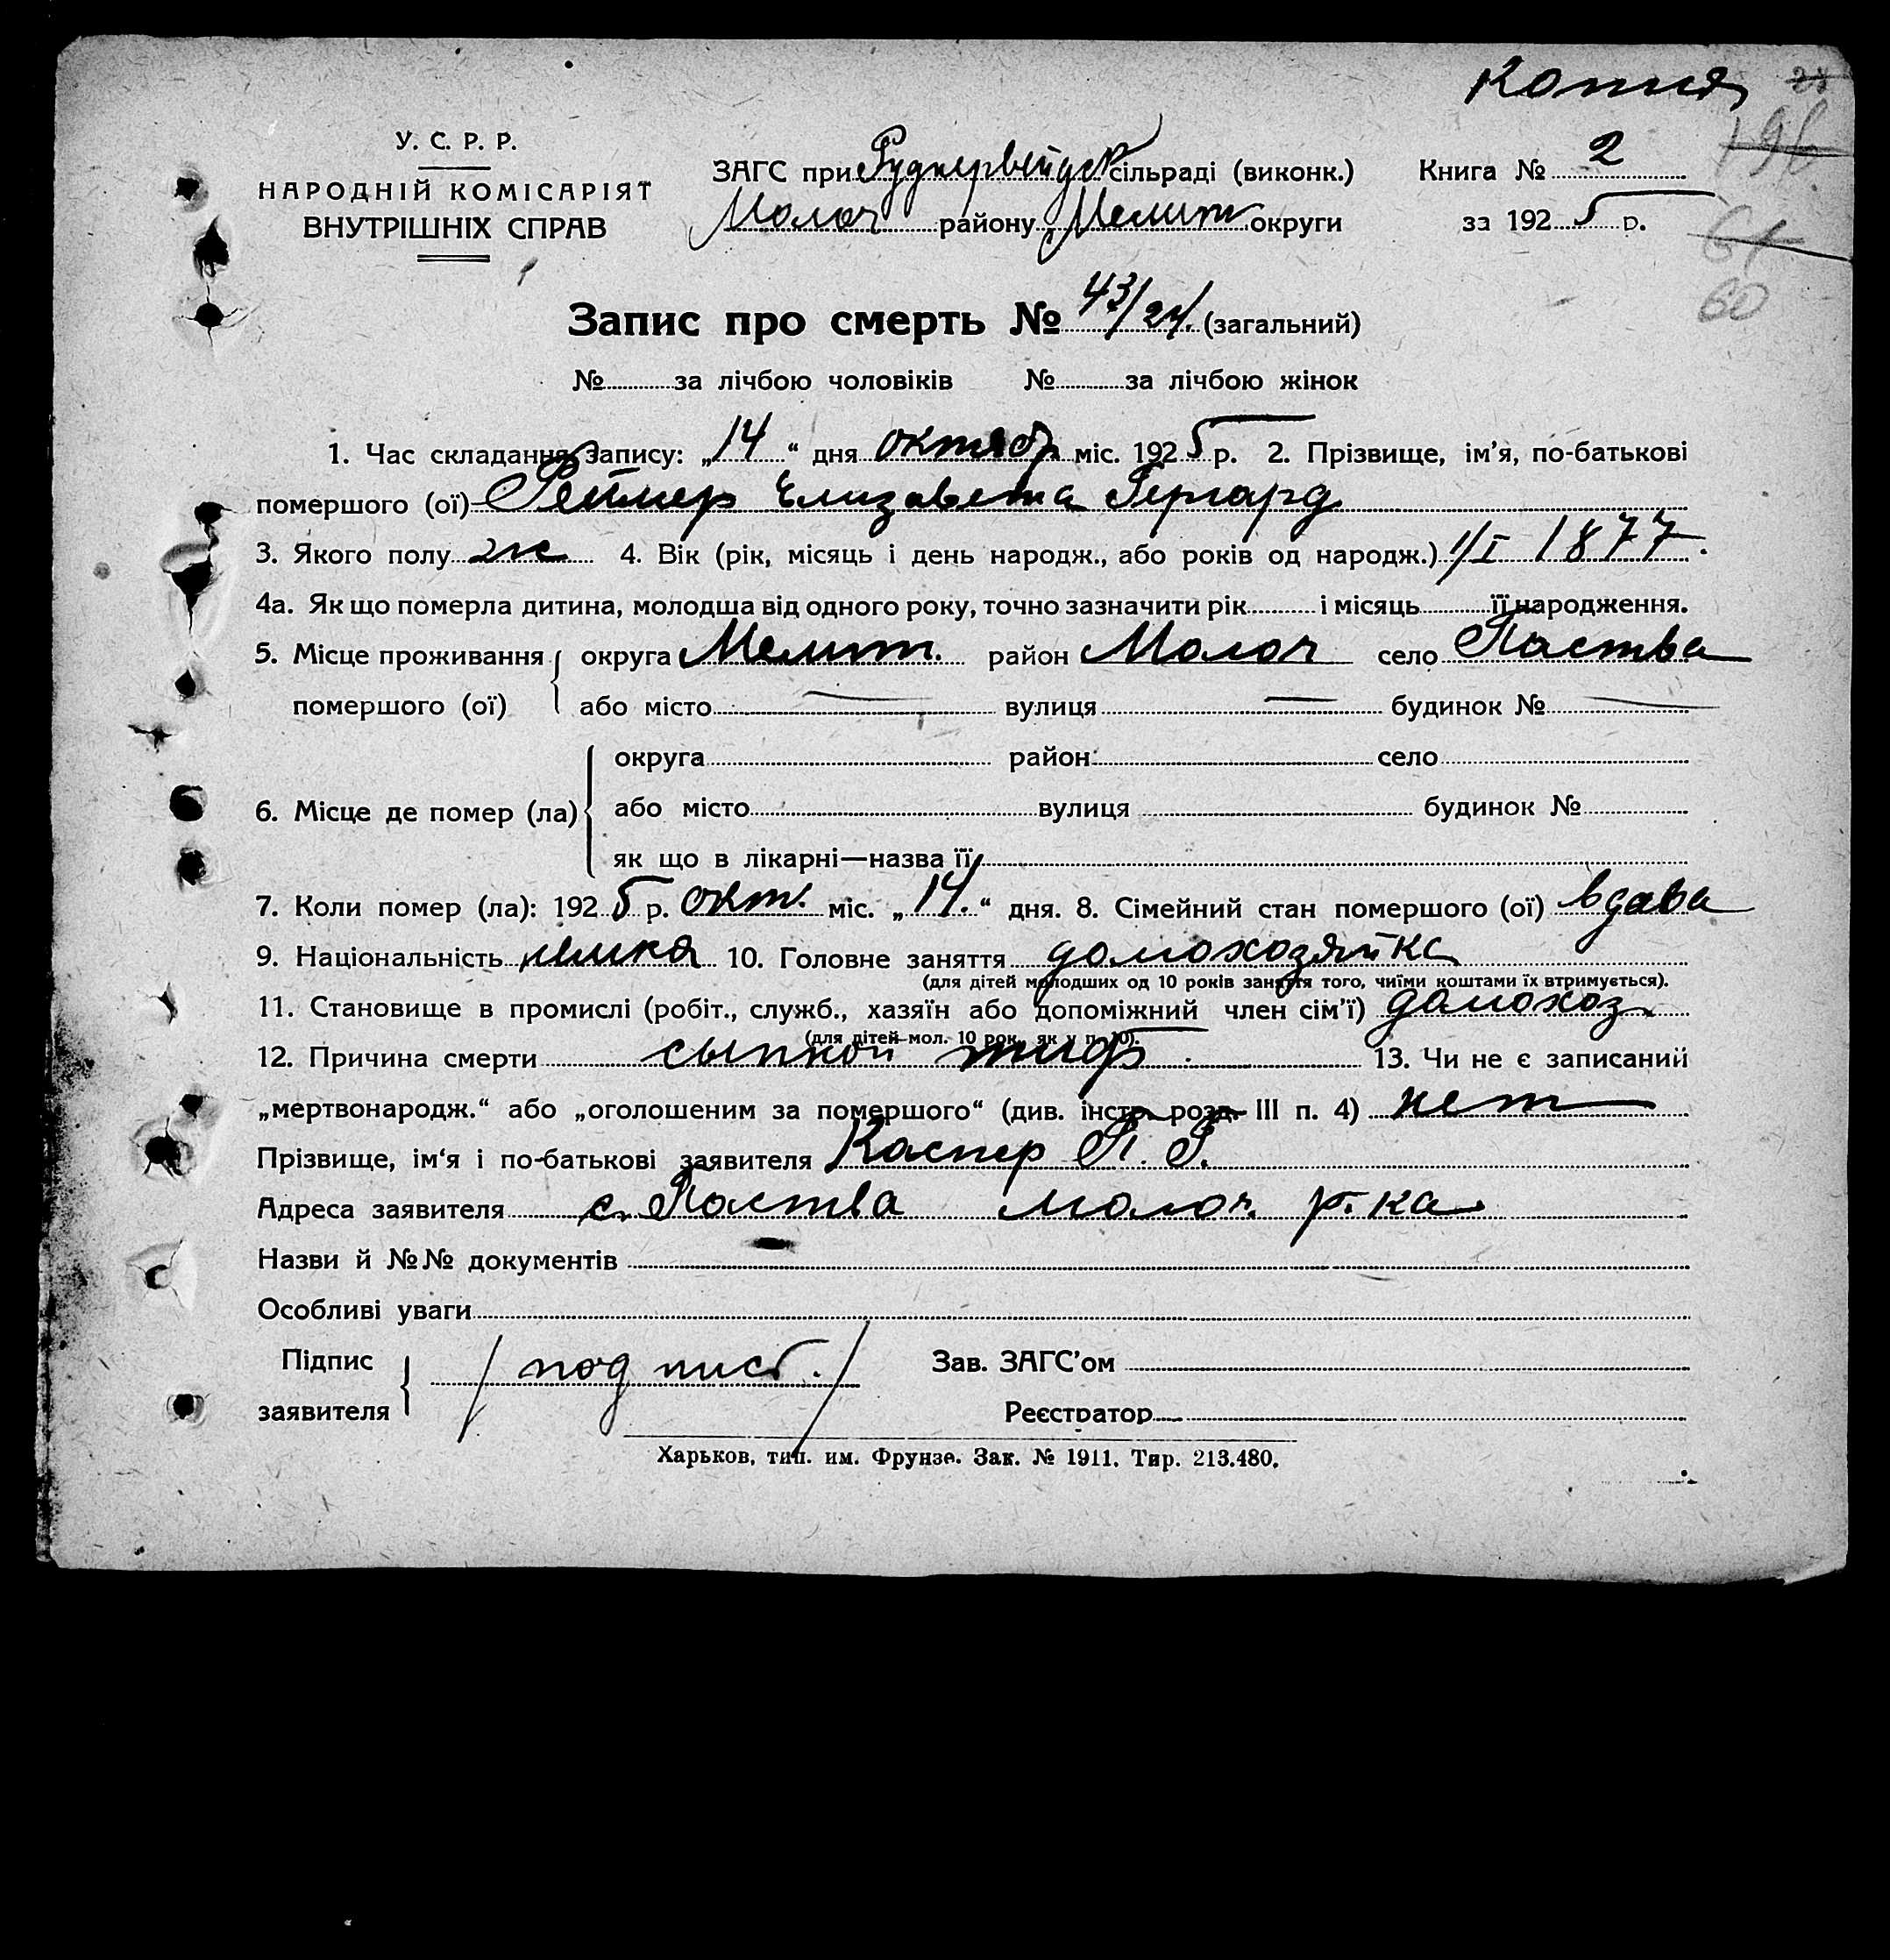 Копия
У. С. Р. Р.
НАРОДНІЙ КОМІСАРІЯТ
ВНУТРІШНІХ СПРАВ
ЗАГС при Руднервейдск сільраді (виконк.)
Молоч району Мелит округи
Книга № 2
за 192 5 р.
60
Запис про смерть № 43/24. (загальний)
№ за лічбою чоловіків № за лічбою жінок
1. Час складання запису: „14“ дня октябр міс. 192 5 р. 2. Прізвище, ім'я, по-батькові
помершого (ої) Реймер Елизавета Гергард
3. Якого полу ж 4. Вік (рік, місяць і день народж., або років од народж.) 1/I 1877.
4а. Як що померла дитина, молодша від одного року, точно зазначити рік і місяць її народження.
5. Місце проживання округа Мелит. район Молоч село Паства
помершого (ої) або місто — вулиця — будинок № —
округа район село
6. Місце де помер (ла) або місто вулиця будинок №
як що в лікарні—назва її
7. Коли помер (ла): 192 5 р. окт. міс. „14.“ дня. 8. Сімейний стан помершого (ої) вдова
9. Національність немка 10. Головне заняття домохозяйка
(для дітей молодших од 10 років заняття того, чиїми коштами їх втримується).
11. Становище в промислі (робіт., служб., хазяїн або допоміжний член сім'ї) домохоз
(для дітей мол. 10 рок. як у п. 10).
12. Причина смерти сыпной тиф. 13. Чи не є записаний
„мертвонародж.“ або „оголошеним за помершого“ (див. інстр. розд. III п. 4) нет
Прізвище, ім'я і по-батькові заявителя Каспер П. Г.
Адреса заявителя с. Паства Молоч. р-ка
Назви й №№ документів
Особливі уваги
Підпис
заявителя /подпись./
Зав. ЗАГС'ом
Реєстратор
Харьков, тип. им. Фрунзе. Зак. № 1911. Тир. 213.480.